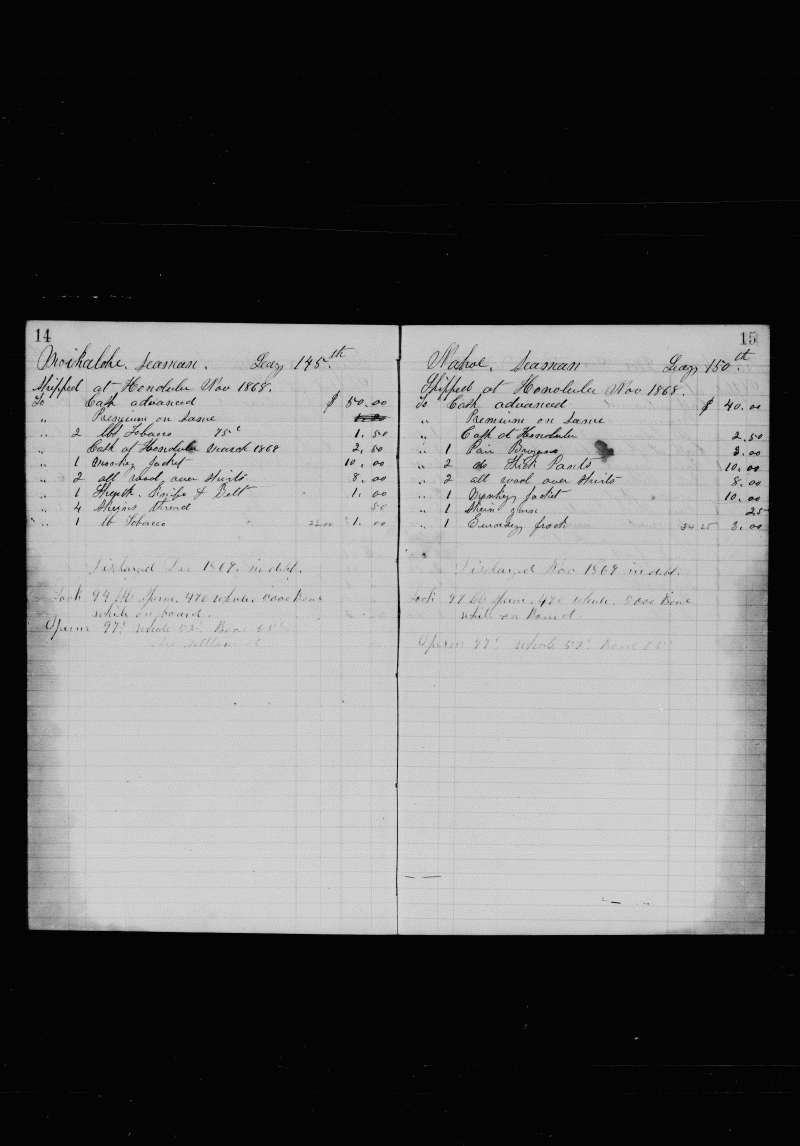 14
Moikalohe, Seaman. Lay, 145.th
Shipped at Honolulu Nov 1868.
To Cash advanced $ 50.00
" Premium on Same
" 2 lbs Tobacco 75c 1.50
" Cash at Honolulu March 1868 2.50
" 1 Monkey Jacket 10.00
" 2 all wool over Shirts 8.00
" 1 Sheath Knife & Belt 1.00
" 4 Skeins thread 50
" 1 lb Tobacco 22.00 1.00
Discharged Dec 1869. in debt.
Took sperm. 470 whale. Bone
while on board.
Sperm 97c Whale 52c Bone 65c
See settlement.
15
Nahoe, Seaman Lay, 150th
Shipped at Honolulu Nov 1868.
To Cash advanced $ 40.00
" Premium on Same
" Cash at Honolulu 2.50
" 1 Pair Brogans 3.00
" 2 do Thick Pants 10.00
" 2 all wool over Shirts 8.00
" 1 Monkey Jacket 10.00
" 1 Skein yarn 25
" 1 frock 34 25 3.00
Discharged Nov 1869 in debt.
Took sperm. 470 whale. Bone
while on Board
Sperm 97c Whale 52c Bone 65c